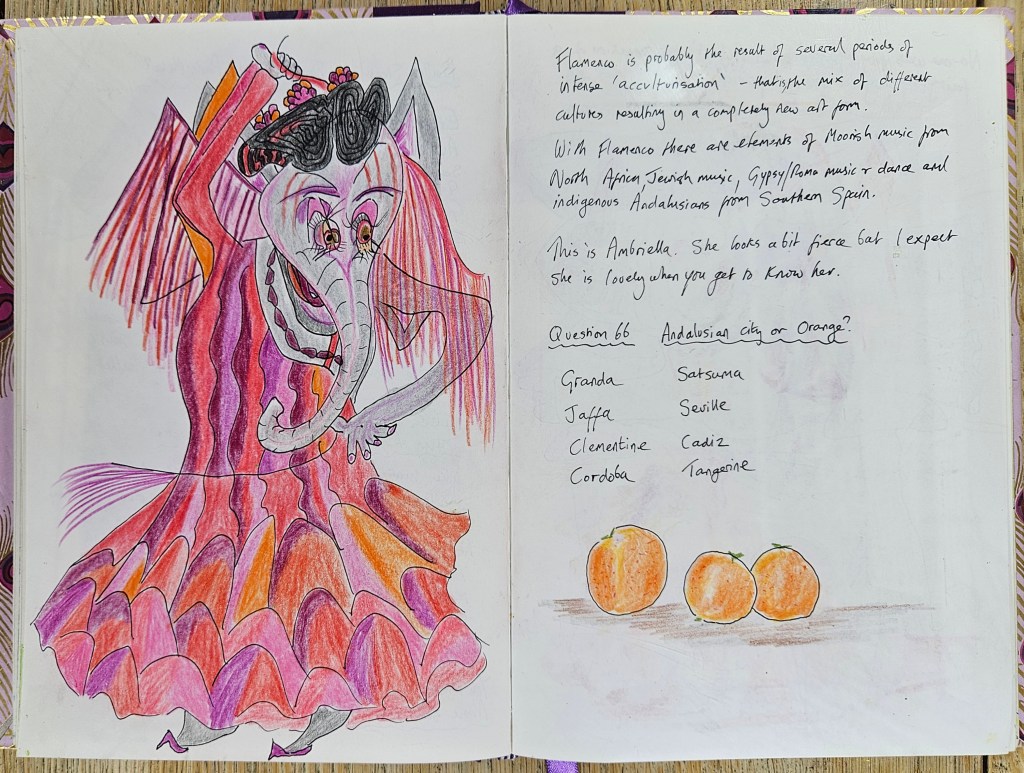 Flamenco is probably the result of several periods of
intense 'acculturisation' - that is the mix of different
cultures resulting in a completely new art form.
With Flamenco there are elements of Moorish music from
North Africa, Jewish music, Gypsy/Roma music & dance and
indigenous Andalusians from Southern Spain.
This is Ambriella. She looks a bit fierce but I expect
she is lovely when you get to know her.
Question 66 Andalusian city or Orange?
Granda Satsuma
Jaffa Seville
Clementine Cadiz
Cordoba Tangerine